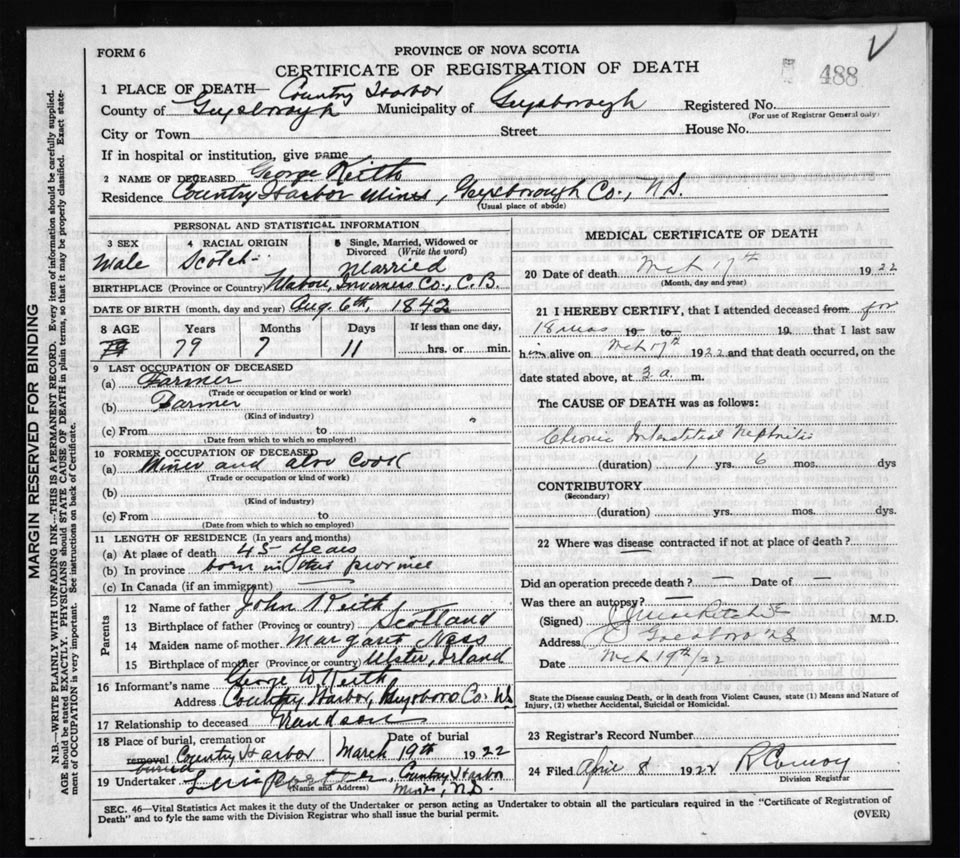 FORM 6
PROVINCE OF NOVA SCOTIA
CERTIFICATE OF REGISTRATION OF DEATH
488
1 PLACE OF DEATH— Country Harbor
County of Guysborough Municipality of Guysborough Registered No.
(For use of Registrar General only)
City or Town Street House No.
If in hospital or institution, give name
2 NAME OF DECEASED George Keith
Residence Country Harbor Mines, Guysborough Co., N.S.
(Usual place of abode)
PERSONAL AND STATISTICAL INFORMATION
3 SEX 4 RACIAL ORIGIN 5 Single, Married, Widowed or Divorced (Write the word)
Male Scotch Married
BIRTHPLACE (Province or Country) Mabou, Inverness Co., C.B.
DATE OF BIRTH (month, day and year) Aug. 6th, 1842
8 AGE Years Months Days If less than one day,
79 7 11 hrs. or min.
9 LAST OCCUPATION OF DECEASED
(a) Farmer
(Trade or occupation or kind of work)
(b) Farmer
(Kind of industry)
(c) From to
(Date from which to which so employed)
10 FORMER OCCUPATION OF DECEASED
(a) Miner and also Cook
(Trade or occupation or kind of work)
(b)
(Kind of industry)
(c) From to
(Date from which to which so employed)
11 LENGTH OF RESIDENCE (In years and months)
(a) At place of death 45 years
(b) In province born in this province
(c) In Canada (if an immigrant)
Parents
12 Name of father John Keith
13 Birthplace of father (Province or country) Scotland
14 Maiden name of mother Margaret Ness
15 Birthplace of mother (Province or country) Ulster, Irland
16 Informant's name George W Keith
Address Country Harbor, Guysboro Co. N.S.
17 Relationship to deceased Grandson
18 Place of burial, cremation or removal Date of burial
buried Country Harbor March 19th 1922
19 Undertaker Country Harbor
(Name and Address) Mines, N.S.
MEDICAL CERTIFICATE OF DEATH
20 Date of death Mch 17th 1922
(Month, day and year)
21 I HEREBY CERTIFY, that I attended deceased from for
18 mos 19 to 19 that I last saw
him alive on Mch 17th 1922 and that death occurred, on the
date stated above, at 3 a. m.
The CAUSE OF DEATH was as follows:
Chronic Interstitial Nephritis
(duration) 1 yrs. 6 mos. dys
CONTRIBUTORY
(Secondary)
(duration) yrs. mos. dys.
22 Where was disease contracted if not at place of death?
Did an operation precede death? — Date of —
Was there an autopsy? —
(Signed) M.D.
Address Goldboro N.S.
Date Mch 19th/22
State the Disease causing Death, or in death from Violent Causes, state (1) Means and Nature of
Injury, (2) whether Accidental, Suicidal or Homicidal.
23 Registrar's Record Number
24 Filed April 8 1922 R Conroy
Division Registrar
SEC. 46—Vital Statistics Act makes it the duty of the Undertaker or person acting as Undertaker to obtain all the particulars required in the "Certificate of Registration of
Death" and to fyle the same with the Division Registrar who shall issue the burial permit.
(OVER)
MARGIN RESERVED FOR BINDING
N.B.—WRITE PLAINLY WITH UNFADING INK—THIS IS A PERMANENT RECORD. Every item of information should be carefully supplied.
AGE should be stated EXACTLY. PHYSICIANS should STATE CAUSE OF DEATH in plain terms, so that it may be properly classified. Exact state-
ment of OCCUPATION is very important. See instructions on back of Certificate.